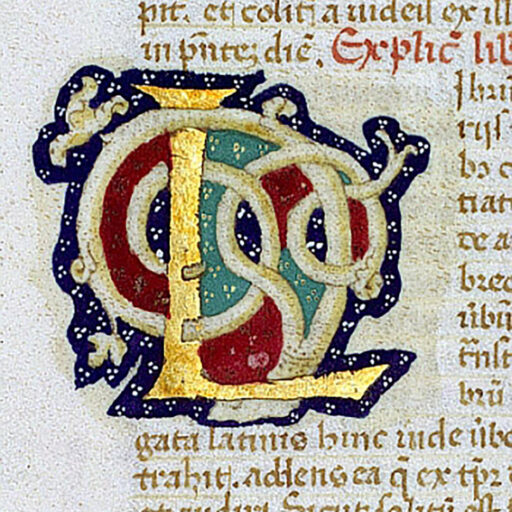 pit. et coliti a iudeis ex ill
in pñtez diē. Explic̄ lib
L
ibrū
rijs
bo c
tiat
te a
bꝛeo
ūbū
tn̄st
bꝛū
gata latinis hinc inde ūbo
trahit. addens ea q̄ ex tp̄r